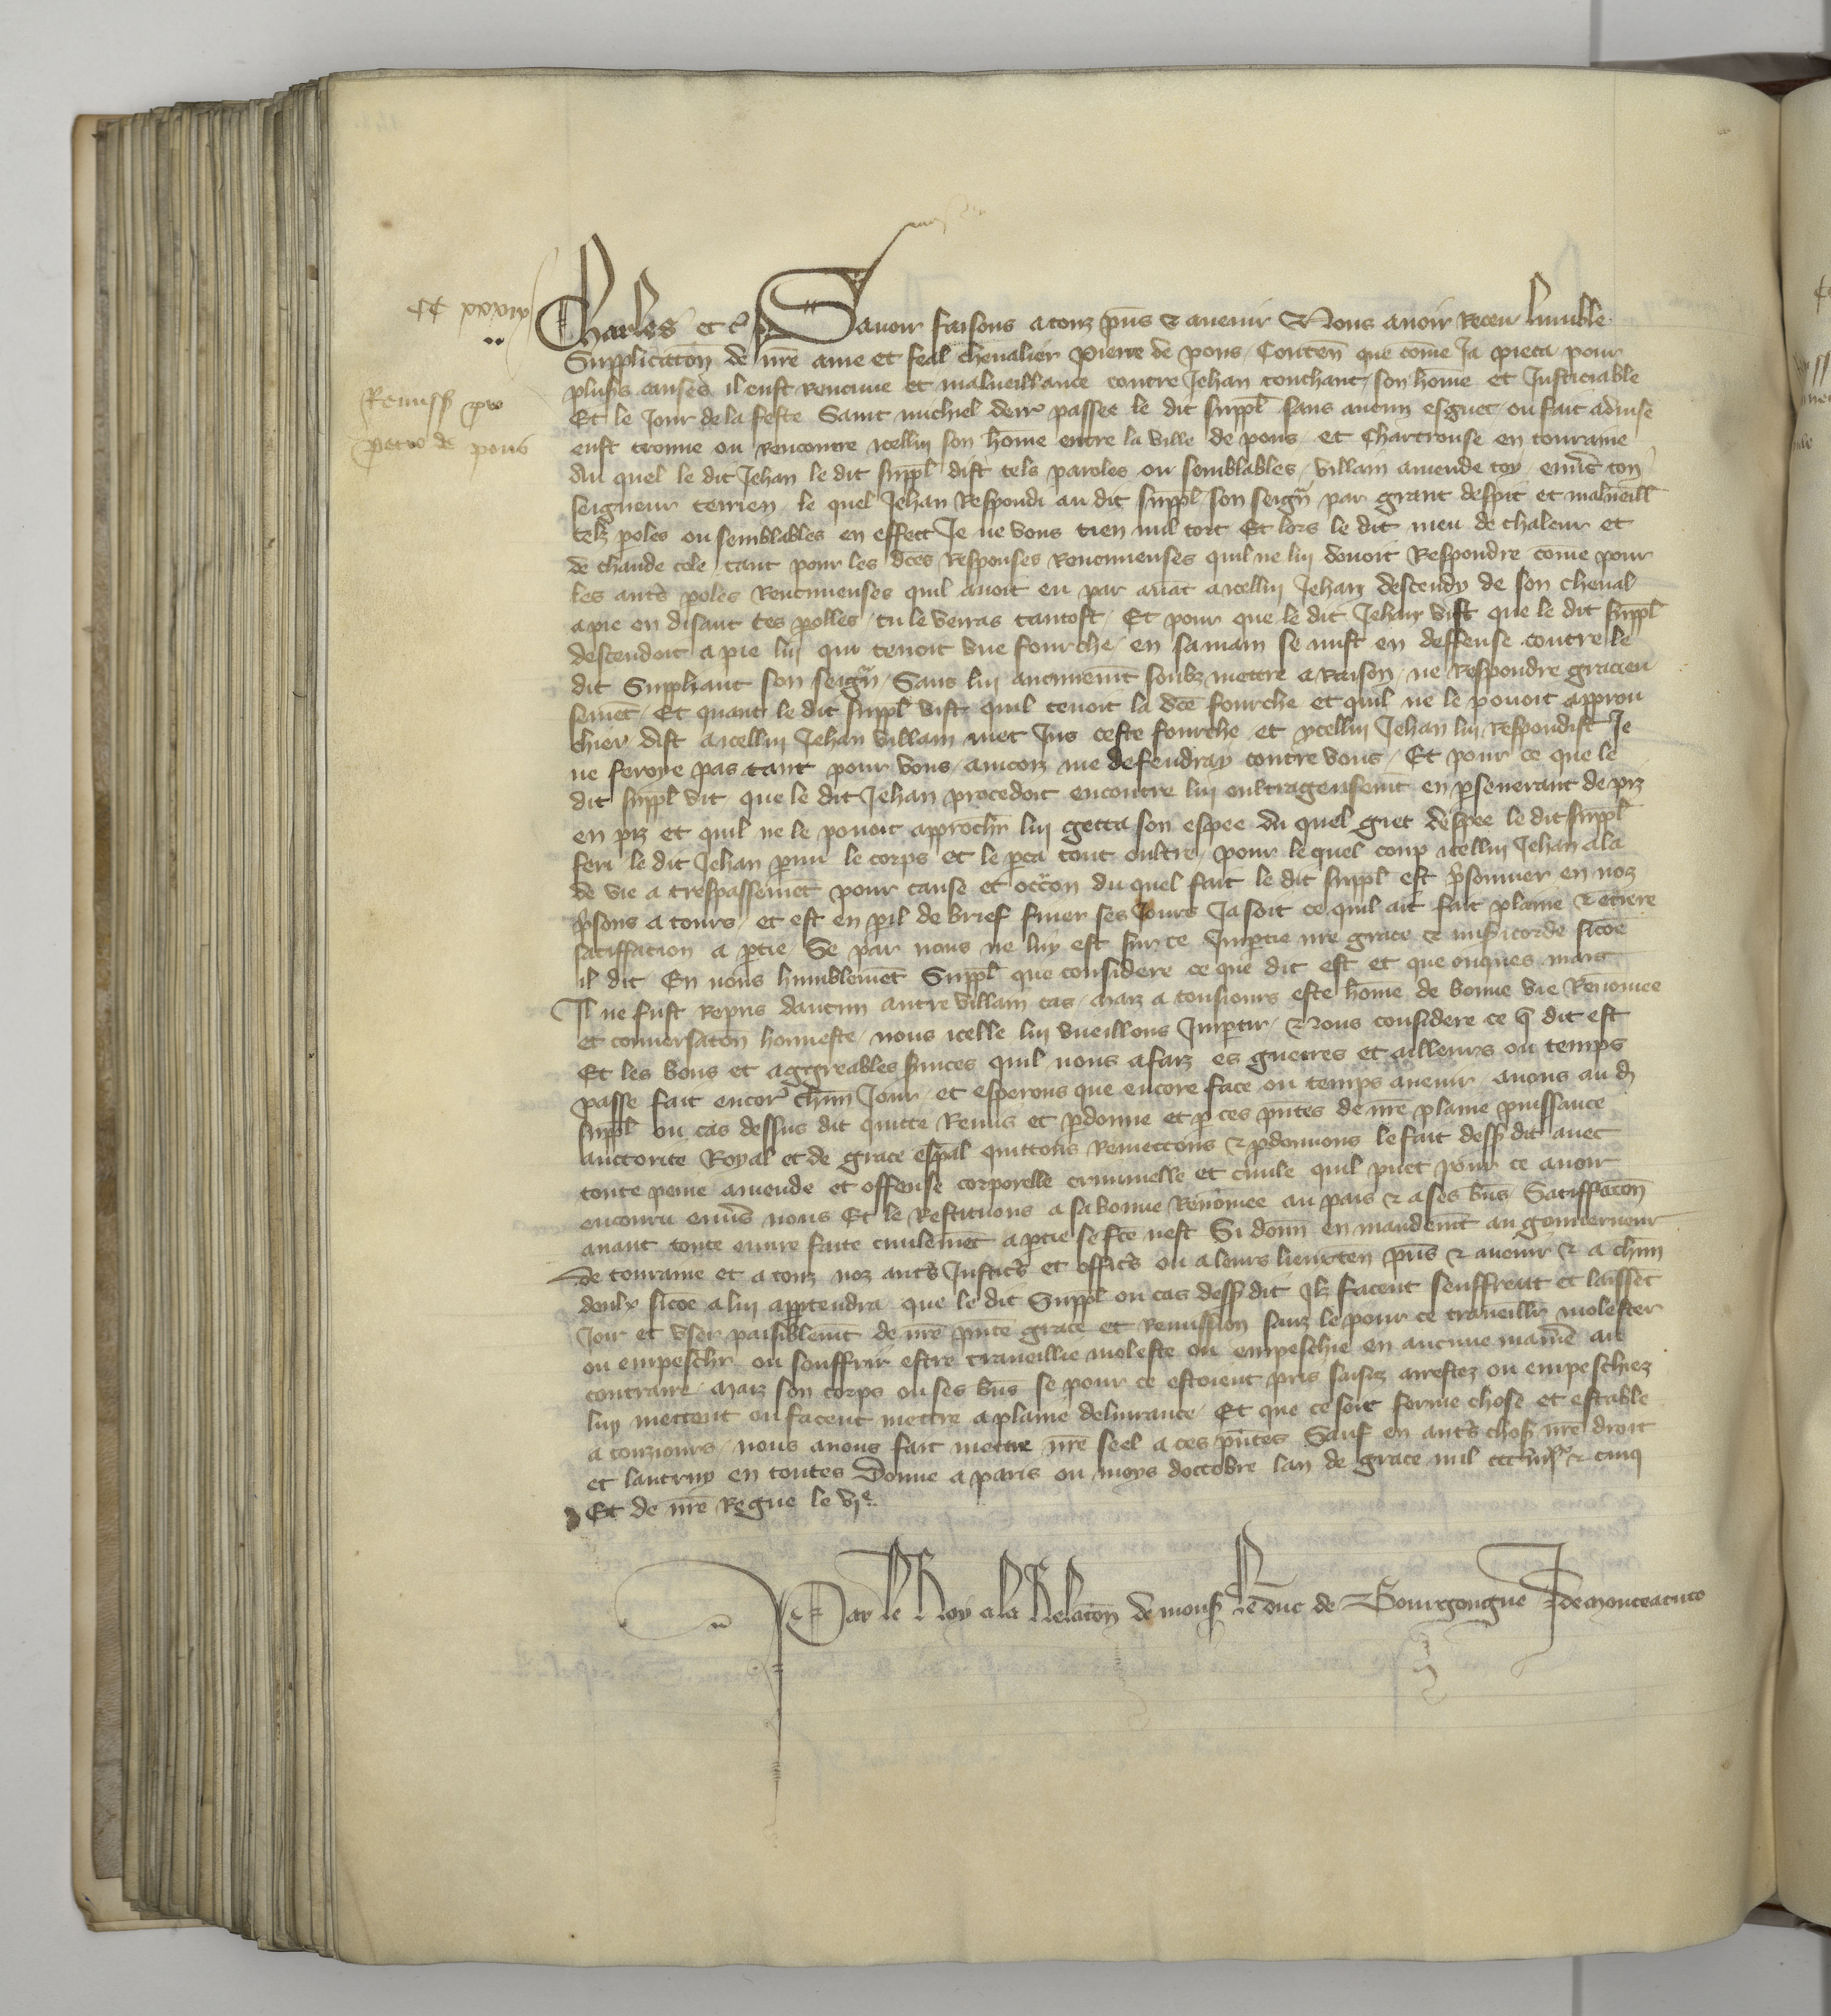 CC xxxix
Charles et c̃ Savoir faisons a touz p̃ns & avenir Nous avoir receu lumble
Supplicatoñ de nr̃e ame et feal chevalier Pierre de pons / Conteñ que com̃e Ja pieca pour
Remiss̃ pro
petro de pons
plus̃s causes il eust rencune et malveillance contre Jehan touchant / son hom̃e et Justiciable
Et le Jour de la feste Saint michiel derr̃ passee le dit suppl̃ sans aucun esguet / ou fait advise
eust trouve ou rencontre icellui son hom̃e entre la ville de pons / et Chartrouse en touraine
Au quel le dit Jehan le dit suppl̃ dist tels paroles ou semblables / villain amende toy / env̾s ton
seigneur terrien / le quel Jehan Respondi au dit suppl̃ son seigñr par grant despit et malveill̃
telz p̃oles ou semblables en effect Je ne vous tien nul tort Et lors le dit meu de chaleur et
de chaude cole / tant pour les dc̃es responses rencuneuses quil ne lui devoit Respondre com̃e pour
les autr̃s p̃oles Rencuneuses quil avoit eu par avãt a icellui Jehan descendy de son cheval
a pie en disant tes p̃olles / tu le verras tantost / Et pour que le dit Jehan vist que le dit suppl̃
descendoit a pie lui qui tenoit une fourche / en sa main se mist en deffense contre le
dit Suppliant son seigñr / Sans lui aucunemẽt soubz mettre a Raison / ne Respondre gracieu
semẽt / Et quant le dit suppl̃ vist quil tenoit la dc̃e fourche et quil ne le povoit approu
chier / dist a icellui Jehan villain met Jus ceste fourche / et ycellui Jehan lui respondist Je
ne feroye pas tant pour vous / aincoiz me defendray contre vous / Et pour ce que le
dit suppl̃ vit que le dit Jehan procedoit encontre lui oultrageusemẽt en p̃severant de piz
en piz et quil ne le povoit approchr̃ lui getta son espee du quel giet despee le dit suppl̃
feri le dit Jehan p̃mi le corps et le p̃ca tout oultre / pour le quel coup icellui Jehan ala
de vie a trespassemẽt pour cause et occoñ du quel fait le dit suppl̃ est p̃sonnier en noz
p̃sons a tours / et est en p̃il de brief finer ses Jours Ja soit ce quil ait fait plaine & ẽtiere
satiffacion a p̃tie / Se par nous ne luy est sur ce Imp̃tie nr̃e grace & mis̃icorde sicom̃e
il dit / En nous humblemẽt Suppl̃ que considere ce que dit est et que onques mais
Il ne fust repris daucun autre villain cas / maiz a tousiours este hom̃e de bonne vie Renom̃ee
et conversatoñ honneste / nous icelle lui vueillons Imp̃tir / & Nous considere ce q̃ dit est
Et les bons et aggreables s̃vices quil nous a faiz es guerres et ailleurs ou temps
passe fait encor̃ chũn Jour / et esperons que encore face ou temps avenir / avons au d̃
suppl̃ ou cas dessus dit quitte Remis et p̃donne et p̃ ces p̃ntes de nr̃e plaine puissance
auctorite Royal et de grace esp̃al quittons Remettons & p̃donnons le fait dess̃ dit avec
toute peine amende et offense corporelle criminelle et civile quil puet pour ce avoir
encouru env̾s nous Et le Restituons a sa bonne Renom̃ee au pais & a ses biñs / Satiffacoñ
avant toute euvre faite civilemẽt a p̃tie se fc̃e nest Si donñ en mandemẽt au gouverneur
de touraine et a touz noz autr̃s Justic̃s et offic̃s ou a leurs lieuxteñ p̃ns & avenir & a chũn
deulx sicom̃e a lui app̃tendra que le dit Suppl̃ ou cas dess̃ dit Ilz facent seuffrent et laissẽt
Joir et user paisiblemẽt de nr̃e p̃nte grace et Remission sanz le pour ce traveillr̃ molester
ou empeschr̃ ou souffrir estre traveillie moleste ou empeschie en aucune mañie au
contraire / maiz son corps ou ses biñs se pour ce estoient pris saisiz arrestez ou empeschiez
luy mettent ou facent mettre a plaine delivrance / Et que ce soit ferme chose et estable
a touziours / nous avons fait mettre nr̃e seel a ces p̃ntes Sauf en autr̃s chos̃ nr̃e droit
et lautruy en toutes Donne a paris ou moys doctobre lan de grace mil ccc iiii xx & cinq
Et de nr̃e Regne le vi e
Par le Roy a la Relatoñ de mons̃ le duc de Bourgongne J de monteacuto